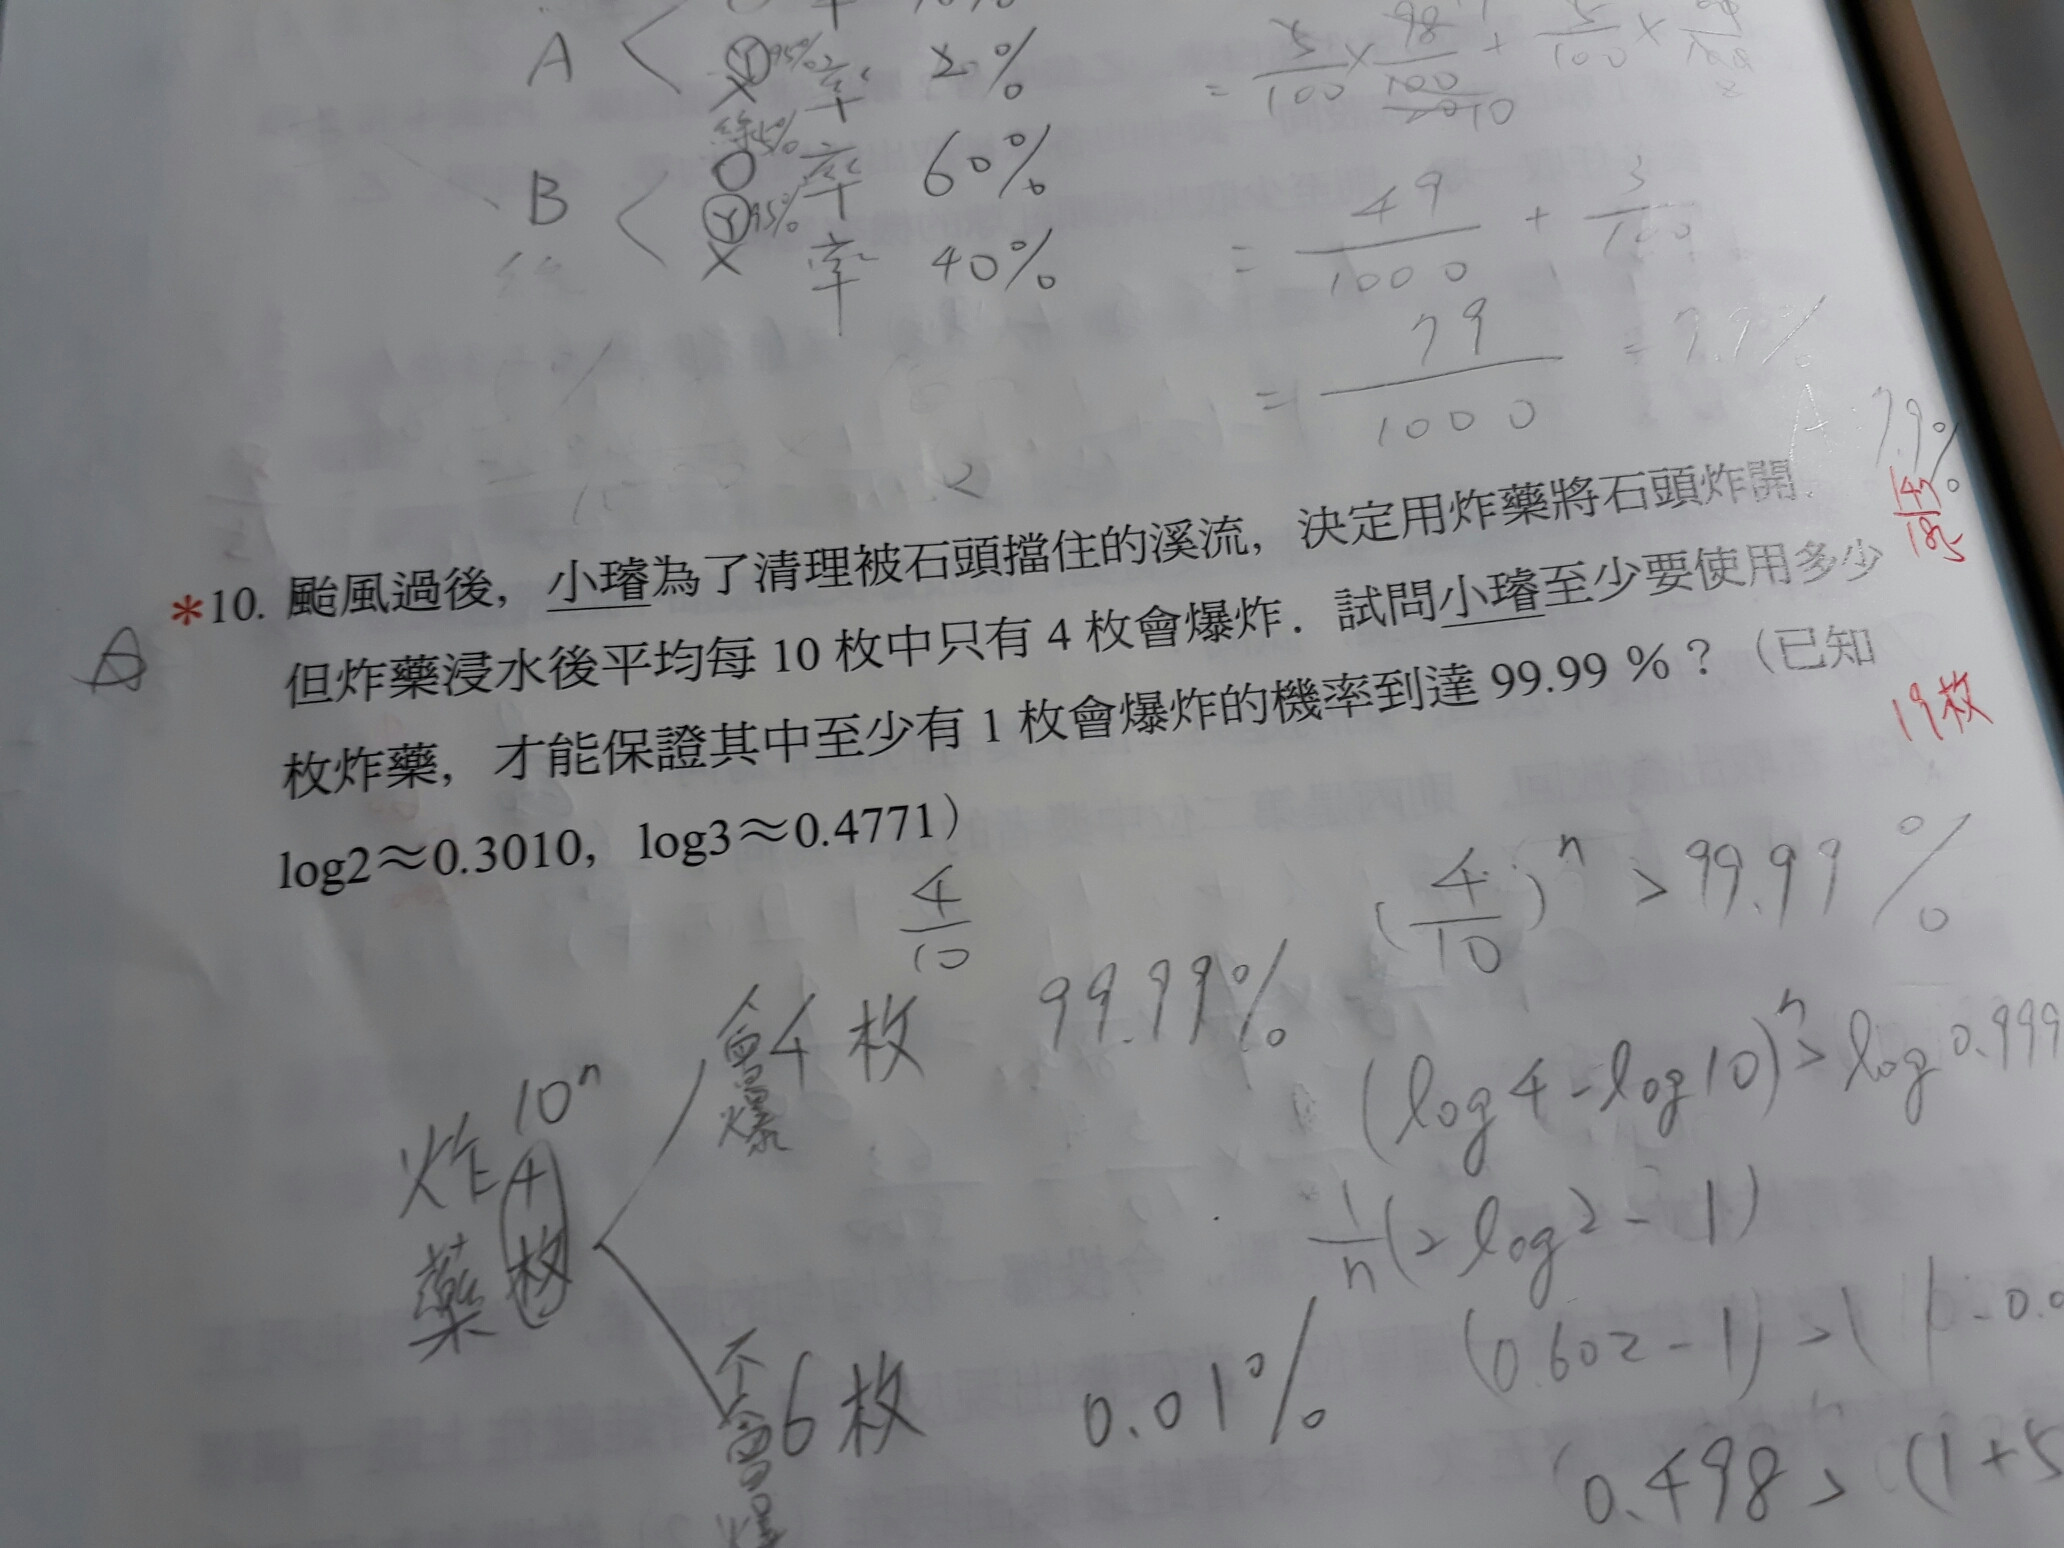 A
95%
率 20%
60%
B
95%
率 40%
= 5/100 × 98/100 + 5/100 ×
= 49/1000 + 3/100
= 79/1000 = 7.9%
A: 7.9%
*10. 颱風過後，小璿為了清理被石頭擋住的溪流，決定用炸藥將石頭炸開．
但炸藥浸水後平均每 10 枚中只有 4 枚會爆炸．試問小璿至少要使用多少
枚炸藥，才能保證其中至少有 1 枚會爆炸的機率到達 99.99 %？（已知
log2≈0.3010，log3≈0.4771）
19枚
4/10
(4/10)^n > 99.99%
會爆 4枚 99.99%
(log4-log10)^n > log0.999
炸藥 10^n
十枚
1/n(2log2-1)
不會爆 6枚 0.01%
(0.602-1)>
0.498 > (1+5